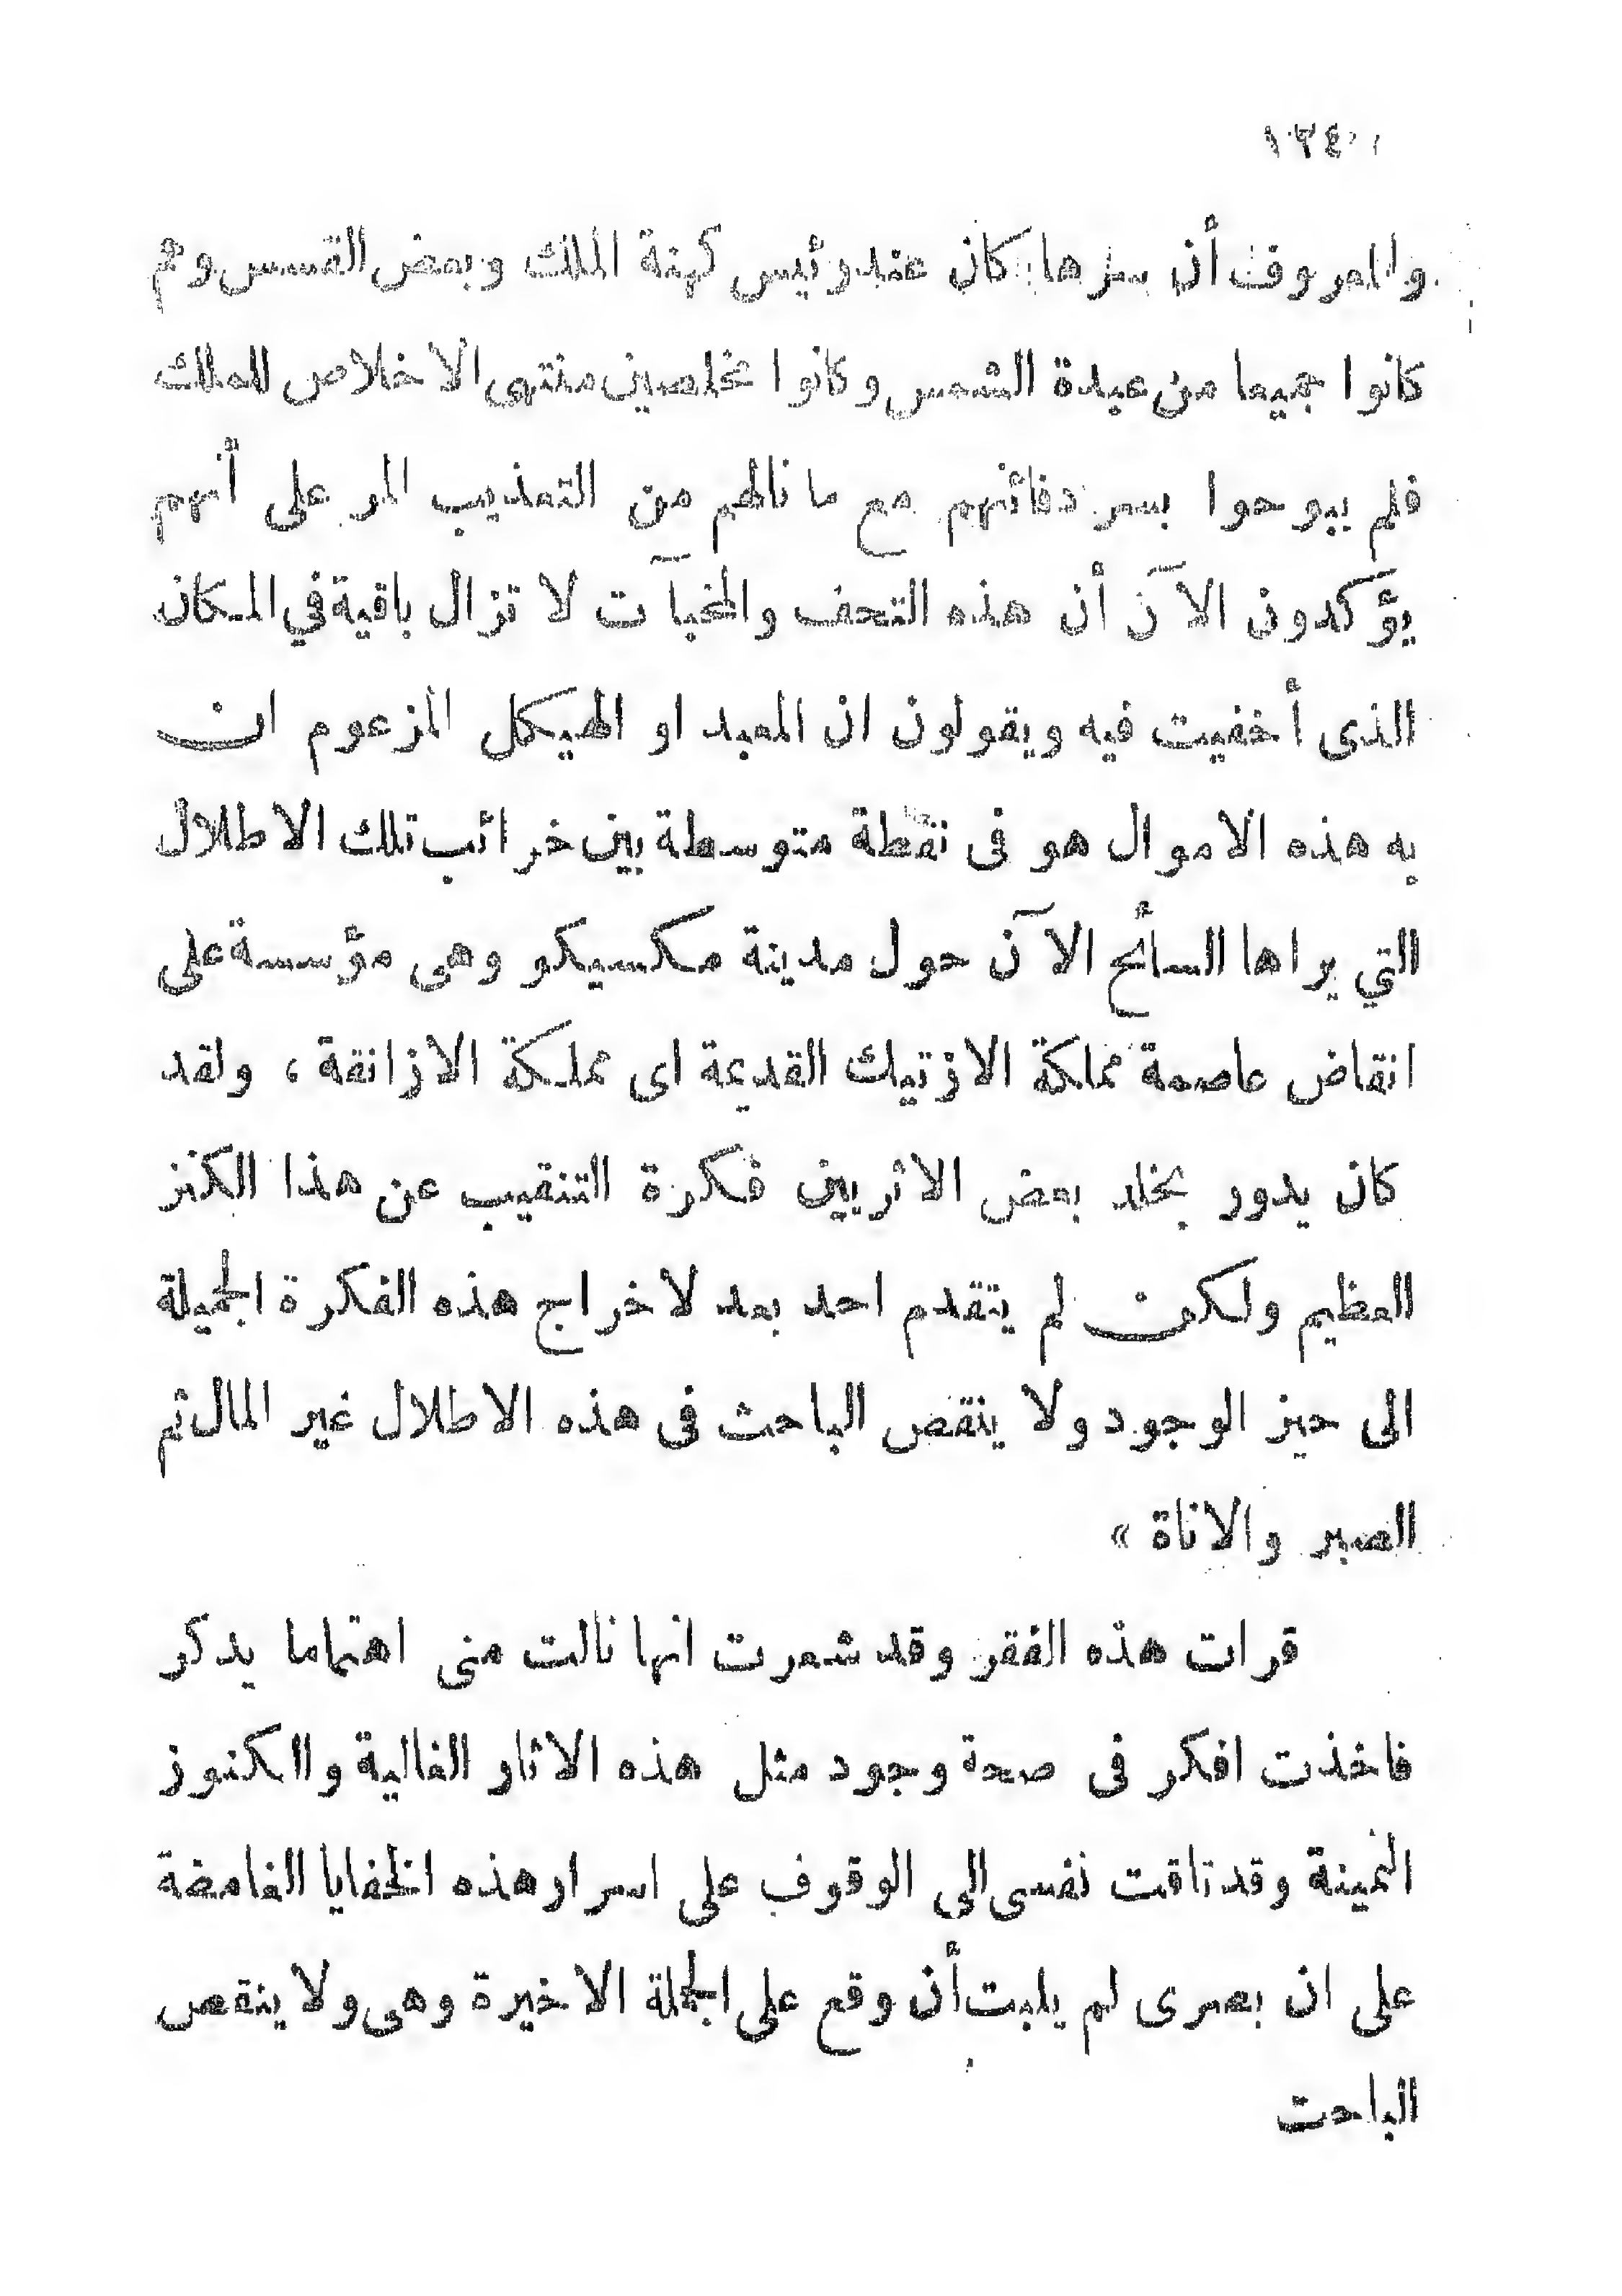 ١٣٤٠
والمعروف أن سرها كان عند رئيس كهنة الملك وبعض القسس وهم
كانوا جميعا من عبدة الشمس وكانوا مخلصين منتهى الاخلاص للملك
فلم يبوحوا بسر دفائنهم مع ما نالهم من التعذيب المر على أنهم
يؤكدون الآن أن هذه التحف والمخبآت لا تزال باقية في المكان
الذى أخفيت فيه ويقولون ان المعبد او الهيكل المزعوم ان
به هذه الاموال هو فى نقطة متوسطة بين خرائب تلك الاطلال
التي يراها السائح الآن حول مدينة مكسيكو وهى مؤسسة على
انقاض عاصمة مملكة الازتيك القديمة اى مملكة الازانقة ، ولقد
كان يدور بخلد بعض الاثريين فكرة التنقيب عن هذا الكنز
العظيم ولكن لم يتقدم احد بعد لاخراج هذه الفكرة الجميلة
الى حيز الوجود ولا ينقص الباحث فى هذه الاطلال غير المال ثم
الصبر والاناة »
قرات هذه الفقر وقد شعرت انها نالت منى اهتماما يدكر
فاخذت افكر فى صحة وجود مثل هذه الاثار الغالية واالكنوز
الثمينة وقد تاقت نفسى الى الوقوف على اسرار هذه الخفايا الغامضة
على ان بصرى لم يلبت أن وقع على الجملة الاخيرة وهى ولا ينقص
الباحت